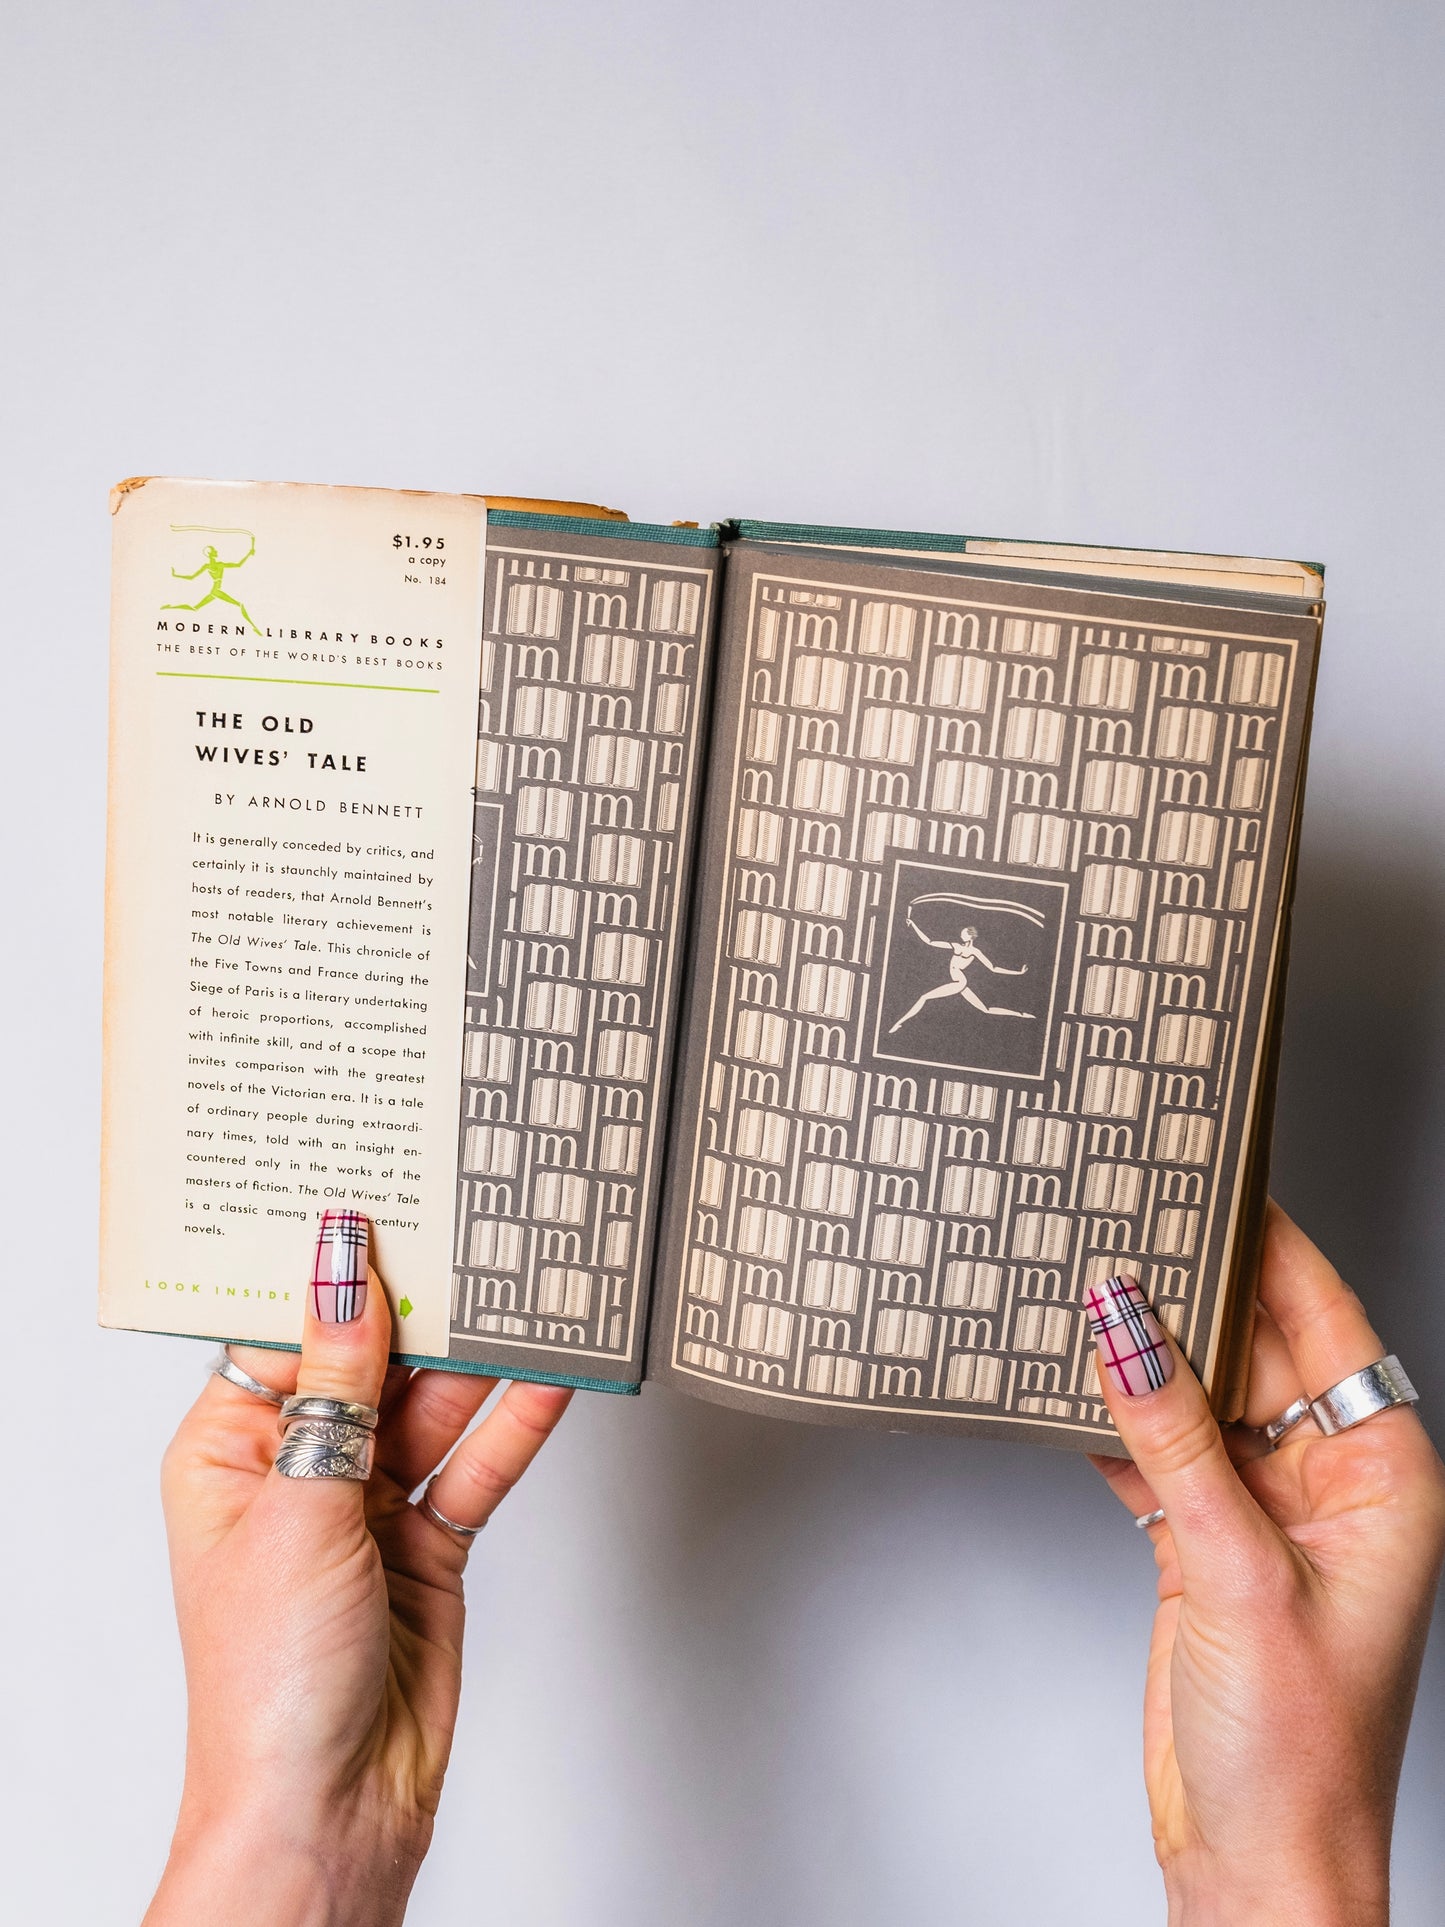 $1.95
a copy
No. 184
MODERN LIBRARY BOOKS
THE BEST OF THE WORLD'S BEST BOOKS
THE OLD
WIVES' TALE
BY ARNOLD BENNETT
It is generally conceded by critics, and
certainly it is staunchly maintained by
hosts of readers, that Arnold Bennett's
most notable literary achievement is
The Old Wives' Tale. This chronicle of
the Five Towns and France during the
Siege of Paris is a literary undertaking
of heroic proportions, accomplished
with infinite skill, and of a scope that
invites comparison with the greatest
novels of the Victorian era. It is a tale
of ordinary people during extraordi-
nary times, told with an insight en-
countered only in the works of the
masters of fiction. The Old Wives' Tale
is a classic among -century
novels.
LOOK INSIDE